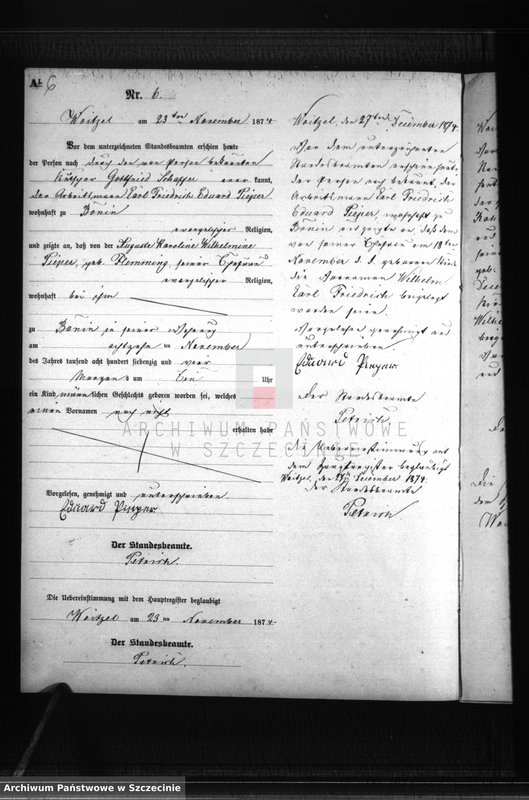 A. 6
Nr. 6.
Woitzel am 23ten November 1874
Vor dem unterzeichneten Standesbeamten erschien heute
der Person nach durch den von Person bekannten
Gottfried Schaffer kannt,
der Arbeitsmann Carl Friedrich Eduard Pieper
wohnhaft zu Bonin
evangelischer Religion,
und zeigte an, daß von der Auguste Karoline Wilhelmine
Pieper, geb. Flemming, seiner Ehefrau
evangelischer Religion,
wohnhaft bei ihm
zu Bonin in seiner Wohnung
am achtzehn ten November
des Jahres tausend acht hundert siebenzig und vier
Morgens um Uhr
ein Kind männlichen Geschlechts geboren worden sei, welches
einen Vornamen noch nicht
erhalten habe
Vorgelesen, genehmigt und unterschrieben
Eduard Pieper
Der Standesbeamte.
Petrich.
Die Uebereinstimmung mit dem Hauptregister beglaubigt
Woitzel am 23 ten November 1874.
Der Standesbeamte.
Petrich.
Woitzel, den 27ten December 1874.
Vor dem unterzeichneten
Standesbeamten erschien heute,
der Person nach bekannt, der
Arbeitsmann Carl Friedrich
Eduard Pieper, wohnhaft zu
Bonin und zeigte an, daß dem
von seiner Ehefrau am 18ten
November d. J. geborenen Kinde
die Vornamen Wilhelm
Carl Friedrich beigelegt
worden seien.
Vorgelesen genehmigt und
unterschrieben
Eduard Pieper
Der Standesbeamte
Petrich
Die Uebereinstimmung mit
dem Hauptregister beglaubigt
Woitzel, den December 1874.
Der Standesbeamte
Petrich
ARCHIWUM PAŃSTWOWE
W SZCZECINIE
Archiwum Państwowe w Szczecinie